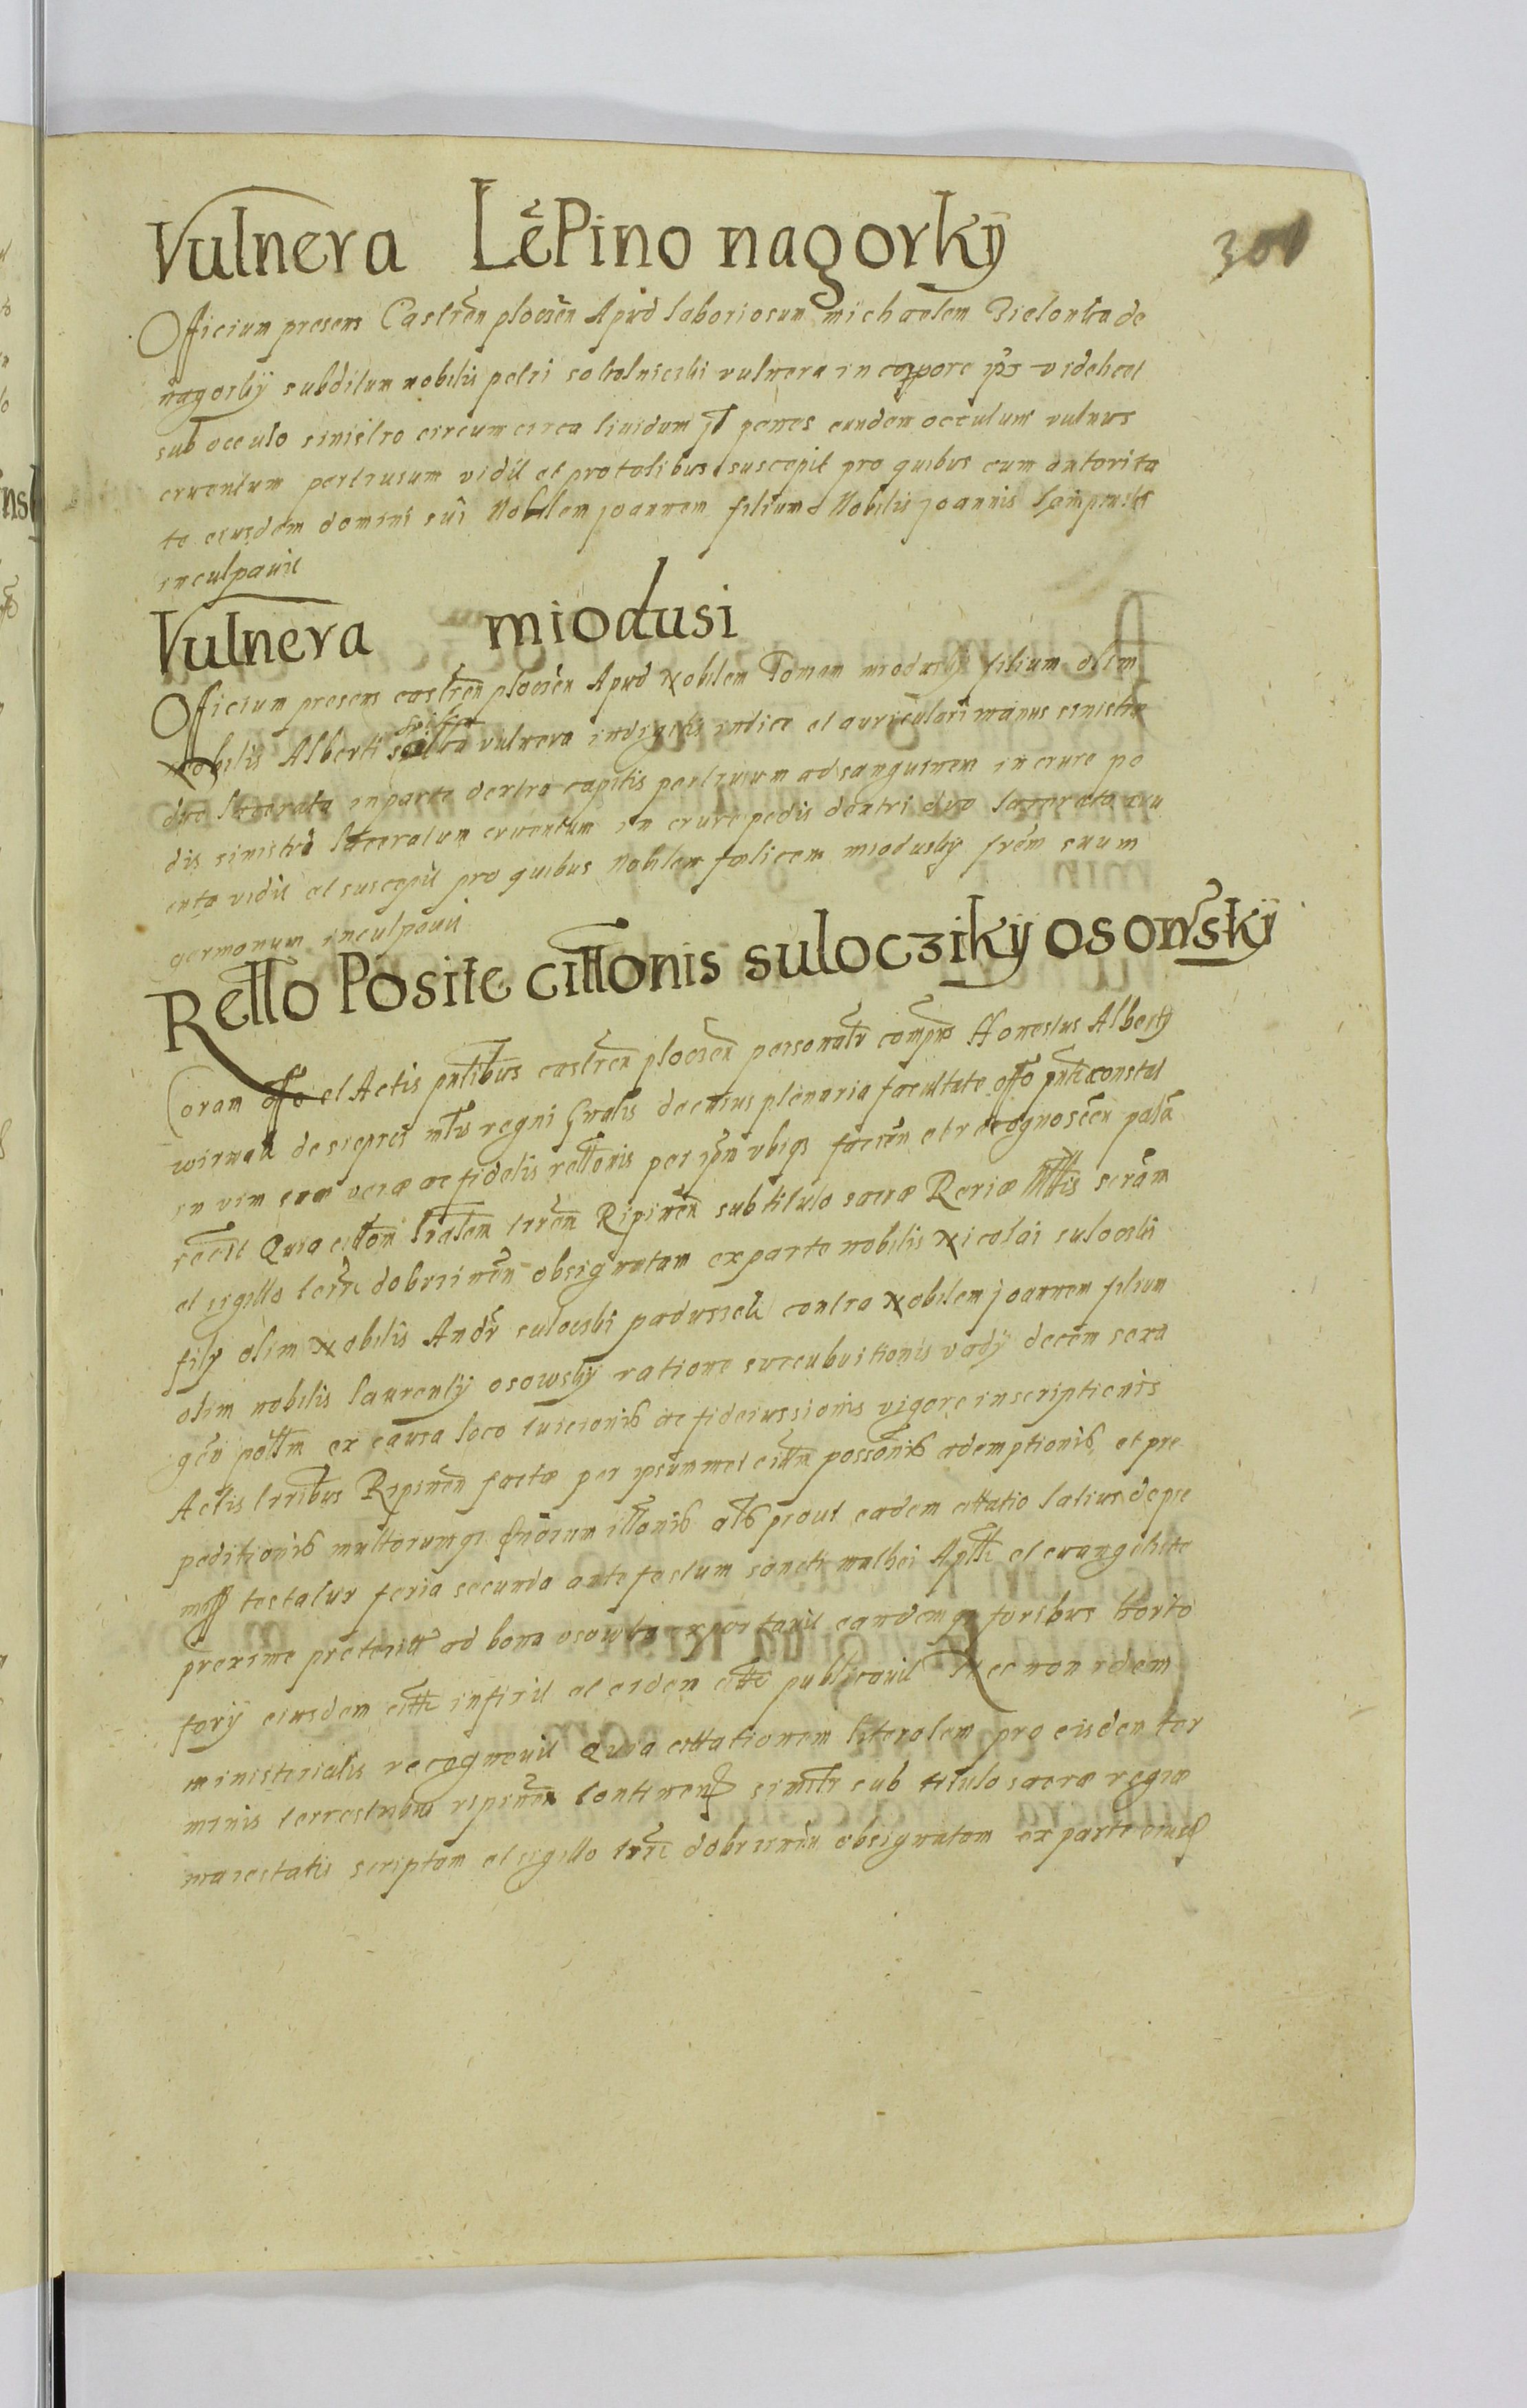 Vulnera Lepino nagorkÿ
301
Officium presens Castren plocen Apud laboriosum michaelem Zielonka de
nagorkÿ subditum nobilis petri sokolnicki vulnera in corpore ips videlicet
sub occulo sinistro circumcirca liuidum it penes eundem occulum vulnus
cruentum pertrusum vidit et pro talibus suscepit pro quibus cum autorita
te eiusdem domini sui Nobilem joannem filium Nobilis joannis
inculpauit
Vulnera miodusi
Officium presens castren plocen Apud Nobilem Tomam miodusky filium olim
Nobilis Alberti vulnera in digitis indice et auriculari manus sinistre
duo lacerata in parte dextra capitis pertrusum ad sanguinem in crure pe
dis sinistri laceratum cruentum in crure pedis dextri duo lacerata cru
enta vidit et suscepit pro quibus Nobilem foelicem miodusky frem suum
germanum inculpauit
Rello Posite cittonis suloczikÿ osowskÿ
Coram offo et Actis pntibus castren plocen personalr compns Honestus Alberty
wirnak de sieprcz mtis regni Gnalis de cuius plenaria facultate offo pnti constat
in vim sue vere ac fidelis rellonis per ipm ubiqs facien et recognoscen pala
recit Quia cittom lralem terren Ripinen sub titulo sacre Regiæ Mttis scram
et sigillo terre dobrinen obsignatam ex parte nobilis Nicolai sulocki
filÿ olim Nobilis Andr sulocki contra Nobilem joannem filium
olim nobilis laurentÿ osowskÿ ratione succubuitionis vadÿ decem sexa
gen pollm ex causa loco tuicionis ac fideiussionis vigore inscriptionis
Actis lrribus Ripinen facte per ipsummet cittm possonis ademptionis et pre
peditionis multorumqs illonis als prout eadem cittatio latius de pre
miss testatur feria secunda ante festum sancti mathei Aplli et euangeliste
proxime preterit ad bona osowka exportauit eandemqs foribus
forÿ eiusdem citti infixit ac eidem citti publicauit Nec non idem
ministerialis recognouit Quia cittationem literalem pro eisdem ter
minis terrestribus ripinen continen similr sub titulo sacræ regiæ
maiestatis scriptam et sigillo lrre dobrinen obsignatam ex parte eiusd